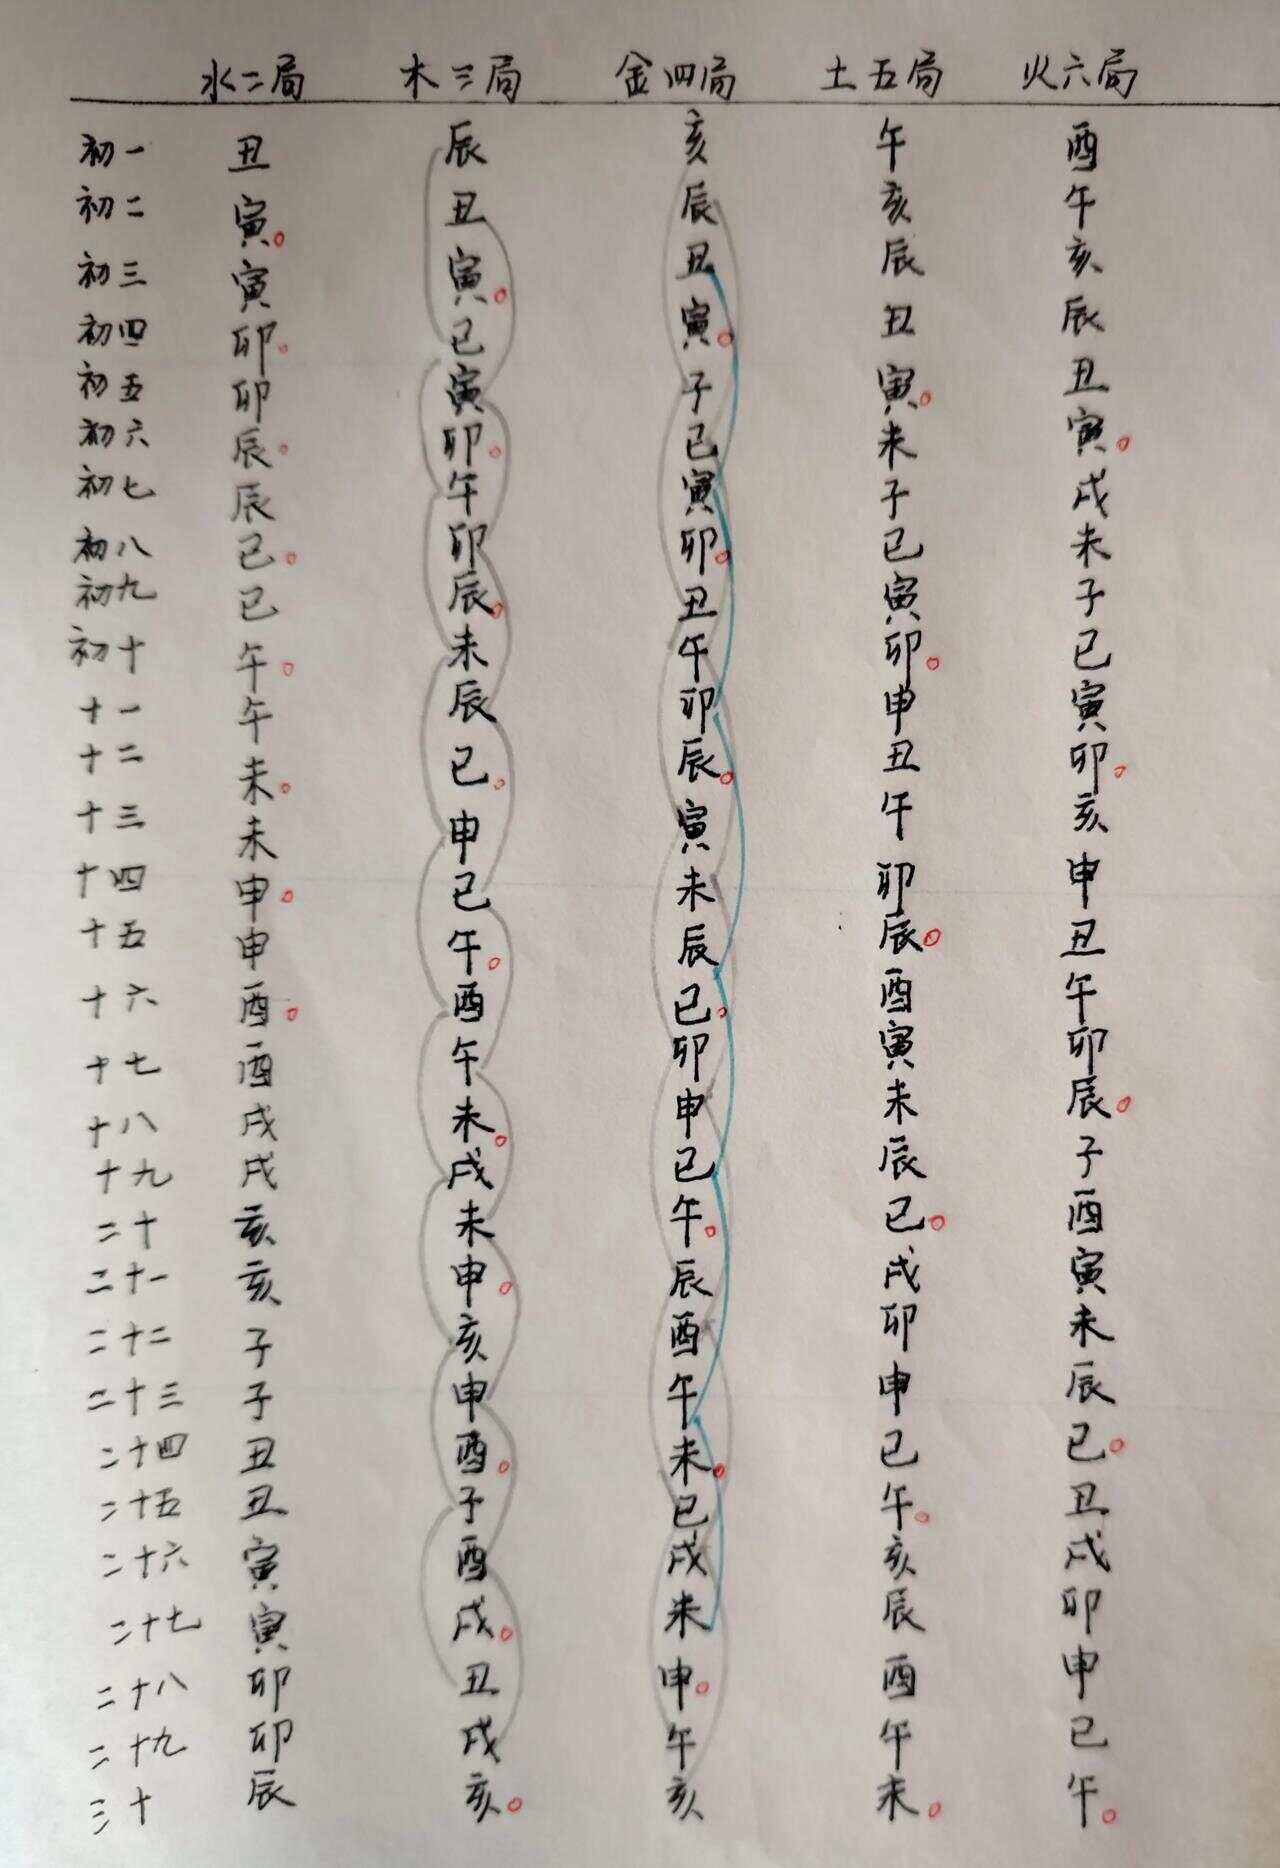 水二局 木三局 金四局 土五局 火六局
初一 丑 辰 亥 午 酉
初二 寅。 丑 辰 亥 午
初三 寅 寅。 丑 辰 亥
初四 卯。 巳 寅。 丑 辰
初五 卯 寅 子 寅。 丑
初六 辰。 卯。 巳 未 寅。
初七 辰 午 寅 子 戌
初八 巳。 卯 卯。 巳 未
初九 巳 辰。 丑 寅 子
初十 午。 未 午 卯。 巳
十一 午 辰 卯 申 寅
十二 未。 巳。 辰。 丑 卯。
十三 未 申 寅 午 亥
十四 申。 巳 未 卯 申
十五 申 午。 辰 辰。 丑
十六 酉。 酉 巳。 酉 午
十七 酉 午 卯 寅 卯
十八 戌 未。 申 未 辰。
十九 戌 戌 巳 辰 子
二十 亥 未 午。 巳。 酉
二十一 亥 申。 辰 戌 寅
二十二 子 亥 酉 卯 未
二十三 子 申 午 申 辰
二十四 丑 酉。 未。 巳 巳。
二十五 丑 子 巳 午。 丑
二十六 寅 酉 戌 亥 戌
二十七 寅 戌。 未 辰 卯
二十八 卯 丑 申。 酉 申
二十九 卯 戌 午 午 巳
三十 辰 亥。 亥 未。 午。